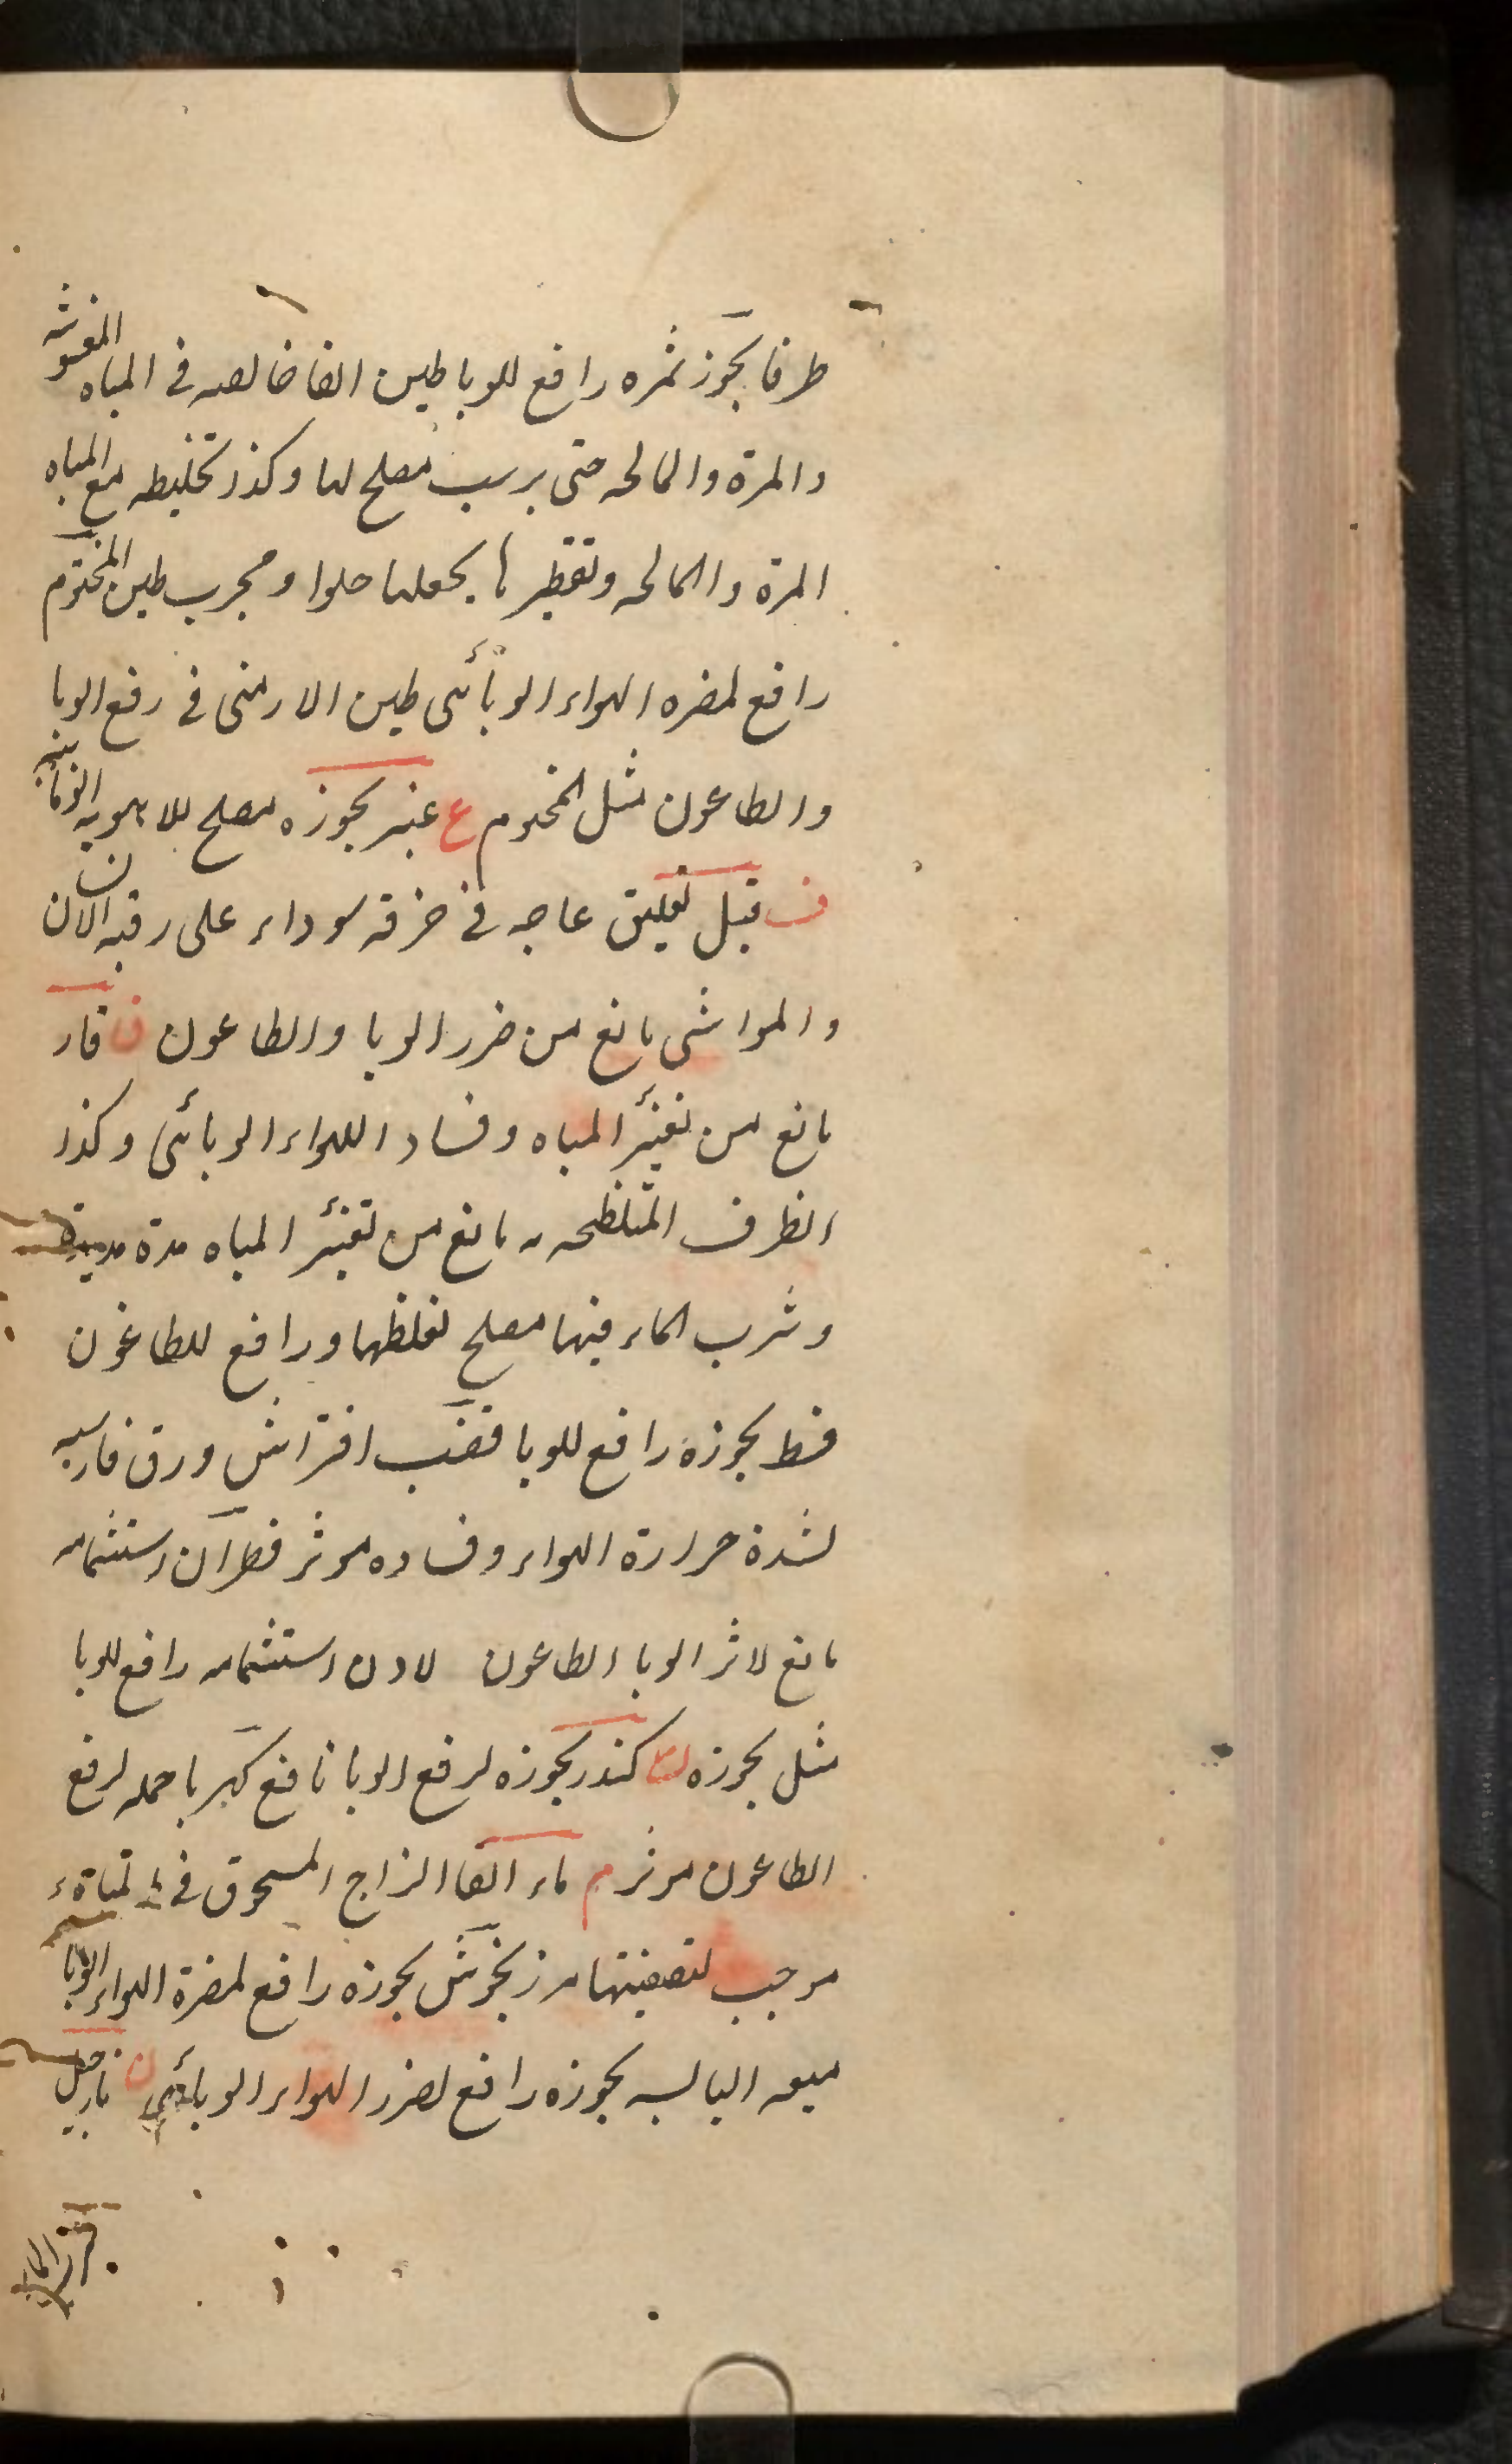 طرفا بخور ثمره رافع للوبا طين القا خالصه فى المياه المغشوشه
والمرة والمالحه حتى يرسب مصلح لها وكذا تخليطه مع المياه
المرة والمالحه وتقطيرها يجعلها حلوا ومجرب طين المختوم
رافع لمضره الهواء الوبائى طين الارمنى فى رفع الوبا
والطاعون مثل المختوم ع عنبر بخوره مصلح للاهويه الوبائيه
ف قيل تعليق عاجه فى خرقه سوداء على رقبه الانسان
والمواشى مانع من ضرر الوبا والطاعون ق قار
مانع من تغيّر المياه وفساد الهواء الوبائى وكذا
الظرف المتلطخه به مانع من تغيّر المياه مدة مديدة
وشرب الماء فيها مصلح لغلظها ورافع للطاعون
قسط بخوره رافع للوبا قصب افتراش ورق فارسيه
لشدة حرارة الهواء وفساده موثر قطران استشمامه
مانع لاثر الوبا الطاعون لادن استشمامه رافع للوبا
مثل بخوره ك كندر بخوره لرفع الوبا نافع كهربا حمله لرفع
الطاعون موثر م ماء القا الزاج المسحوق فى
موجب لتصفيتها مرزنجوش بخوره رافع لمضرة الهواء الوبائى
ميعه اليابسه بخوره رافع لضرر الهواء الوبائى ن نارجيل